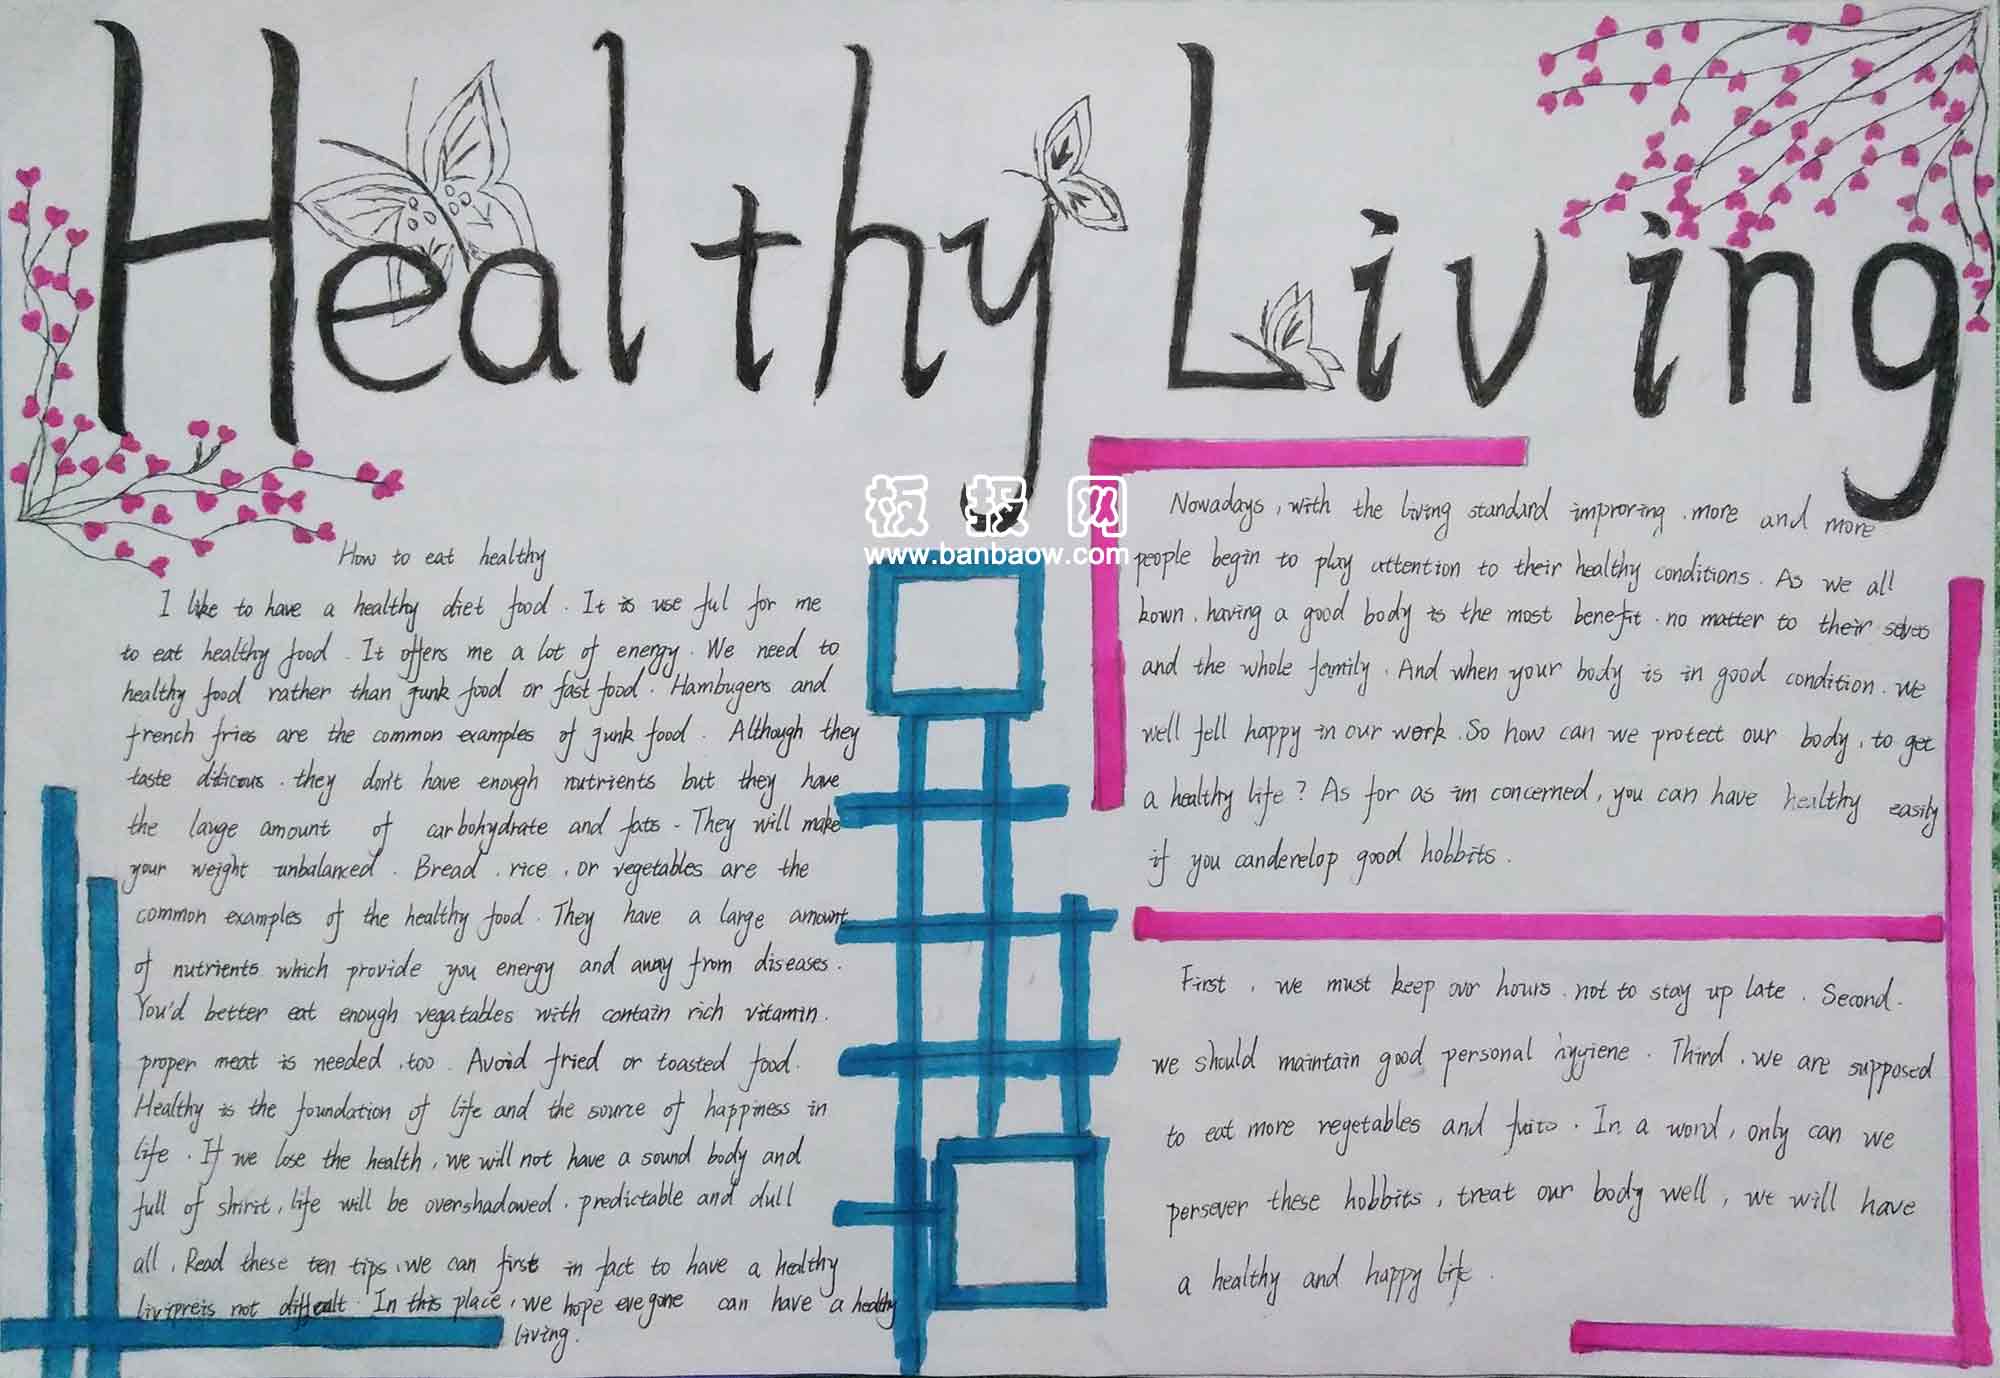 Healthy Living
板报网
www.banbaow.com
How to eat healthy
I like to have a healthy diet food. It is use ful for me
to eat healthy food. It offers me a lot of energy. We need to
healthy food rather than junk food or fast food. Hambugers and
french fries are the common examples of junk food. Although they
taste they don't have enough nutrients but they have
the large amount of carbohydrate and fats. They will make
your weight unbalanced. Bread, rice, or vegetables are the
common examples of the healthy food. They have a large amount
of nutrients which provide you energy and away from diseases.
You'd better eat enough vegatables with contain rich vitamin.
proper meat is needed, too. Avoid fried or toasted food.
Healthy is the foundation of life and the source of happiness in
life. If we lose the health, we will not have a sound body and
full of shirit, life will be overshadowed, predictable and dull
all, Read these ten tips, we can first in fact to have a healthy
not In this place, we hope can have a healthy
living.
Nowadays, with the living standard improring, more and more
people begin to play attention to their healthy conditions. As we all
kown, having a good body is the most benefit, no matter to their selves
and the whole femily. And when your body is in good condition, we
well fell happy in our work. So how can we protect our body, to get
a healthy life? As for as im concerned, you can have healthy easily
if you canderelop good hobbits.
First, we must keep our hours, not to stay up late. Second,
we should maintain good personal hygiene. Third, we are supposed
to eat more regetables and In a word, only can we
persever these hobbits, treat our body well, we will have
a healthy and happy life.